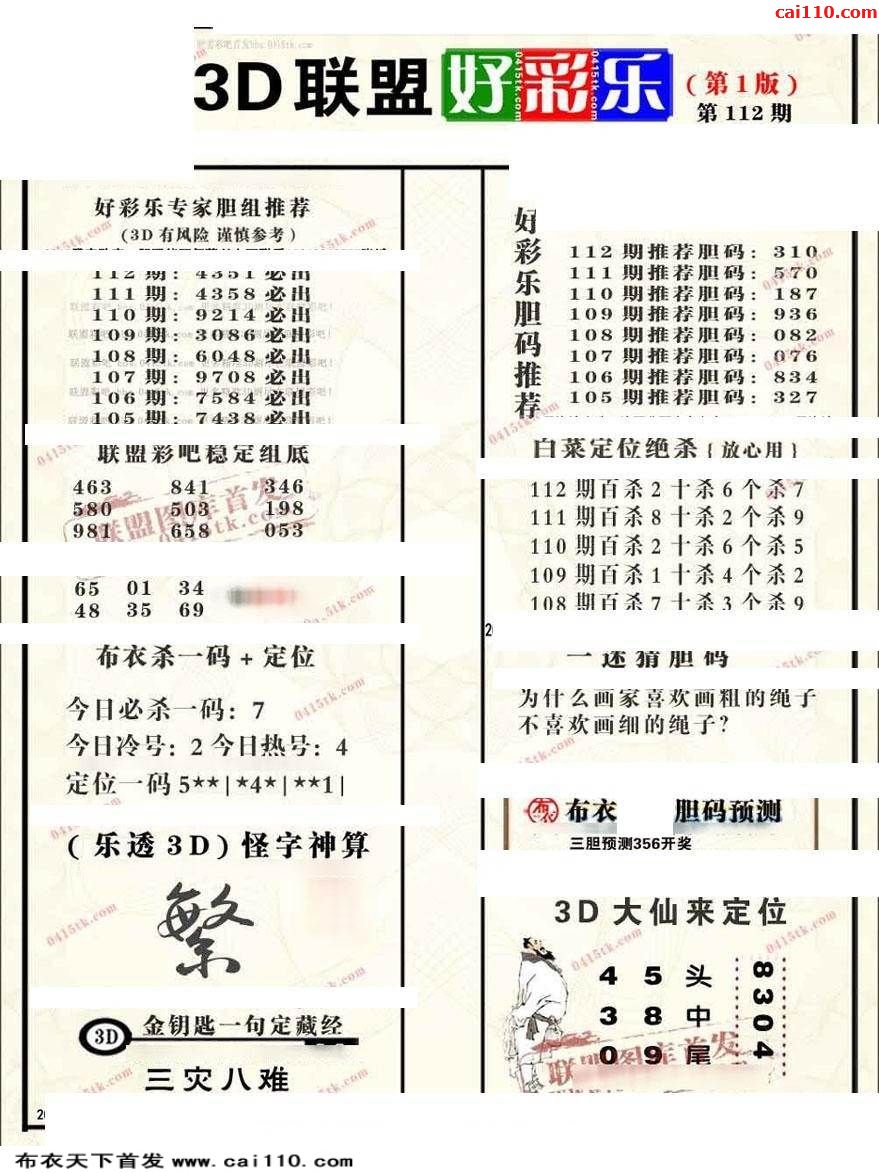 cai110.com
3D联盟好彩乐
(第1版)
第112期
好彩乐专家胆组推荐
(3D有风险 谨慎参考)
112期: 4351必出
111期: 4358必出
110期: 9214必出
109期: 3086必出
108期: 6048必出
107期: 9708必出
106期: 7584必出
105期: 7438必出
联盟彩吧稳定组底
463 841 346
580 503 198
981 658 053
65 01 34
48 35 69
布衣杀一码+定位
今日必杀一码: 7
今日冷号: 2 今日热号: 4
定位一码 5**|*4*|**1|
(乐透3D)怪字神算
繁
3D 金钥匙一句定藏经
三灾八难
好彩乐胆码推荐
112期推荐胆码: 310
111期推荐胆码: 570
110期推荐胆码: 187
109期推荐胆码: 936
108期推荐胆码: 082
107期推荐胆码: 076
106期推荐胆码: 834
105期推荐胆码: 327
白菜定位绝杀{放心用}
112期百杀2十杀6个杀7
111期百杀8十杀2个杀9
110期百杀2十杀6个杀5
109期百杀1十杀4个杀2
108期百杀7十杀3个杀9
一迷猜胆码
为什么画家喜欢画粗的绳子
不喜欢画细的绳子?
布衣 胆码预测
三胆预测356开奖
3D大仙来定位
4 5 头
3 8 中
0 9 尾
8304
联盟图库首发
0415tk.com
布衣天下首发 www.cai110.com